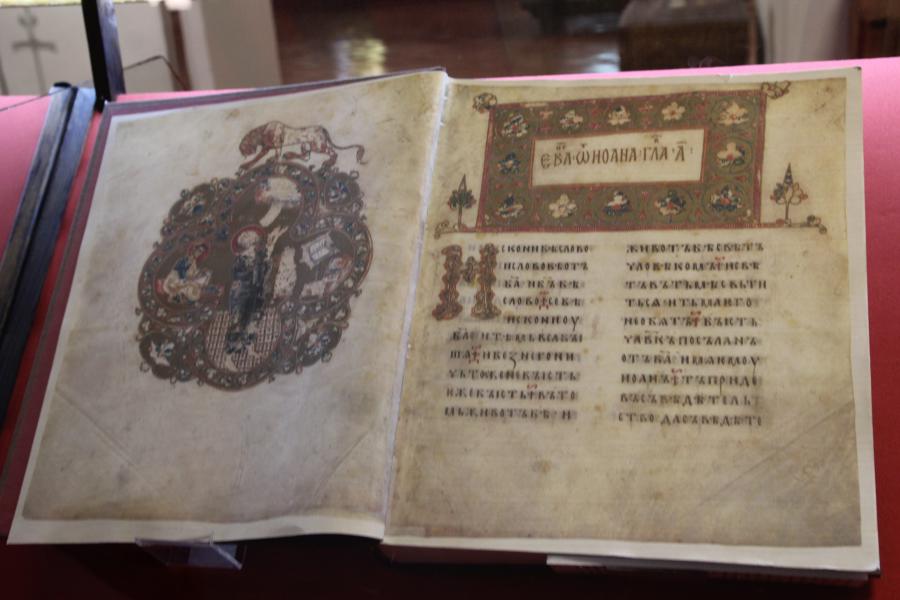 ЕВ҃А·Ѿ ИОАНА·ГЛА·А҃·
СКОНИБѢСЛОВО
ИСЛОВОБѢОТЪ
Б҃А·И Б҃Ъ БѢ
СЛОВО·СЕБѢ
ИСКОНИОУ
Б҃А·И ТѢМЬВСЯБꙐ
ША·И БЕЗНЕГОНИ
ЧЬТОЖЕНЕБꙐСТЬ
ЖИВОТЪБѢСВѢТЪ
ЧЛОВѢКОМЪ·И СВѢ
ТЪВЪТЬМѢСВЬТИ
ТЬСѦ·И ТЬМАѤГО
НЕОБѦТЪ·БꙐСТЬ
ЧЛ҃ВКЪПОСЪЛАНЪ
ОТЪ Б҃А·ИМѦѤМОУ
ИОАНЪ·ТЪПРИДЕ
ВЪСЪВѢДѢТЕЛЬ
СТВО·ДАСЪВѢДѢТЕ